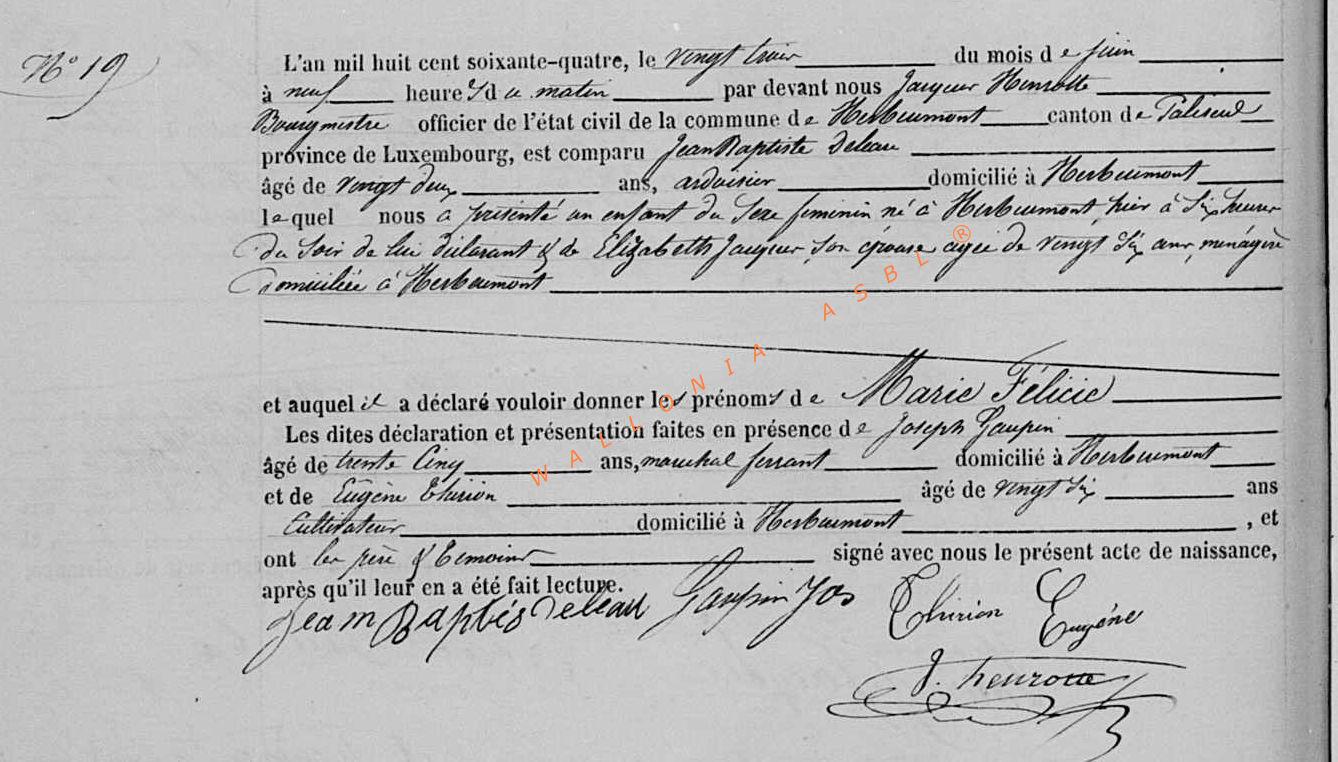 N° 19
L'an mil huit cent soixante-quatre, le vingt trois du mois de juin
à neuf heures du matin par devant nous Jacques Henrotte
Bourgmestre officier de l'état civil de la commune de Herbeumont canton de Paliseul
province de Luxembourg, est comparu Jean Baptiste Deleau
âgé de vingt deux ans, ardoisier domicilié à Herbeumont
lequel nous a présenté un enfant du sexe feminin né à Herbeumont, hier à six heures
du soir de lui déclarant & de Elizabeth Jacques, son épouse agée de vingt six ans, ménagère
domiciliée à Herbeumont
et auquel il a déclaré vouloir donner les prénoms de Marie Félicie
Les dites déclaration et présentation faites en présence de Joseph Gaupin
âgé de trente cinq ans, marechal ferrant domicilié à Herbeumont
et de Eugène Thirion âgé de vingt six ans
Cultivateur domicilié à Herbeumont , et
ont les père & temoins signé avec nous le présent acte de naissance,
après qu'il leur en a été fait lecture.
Jean Baptes Deleau Gaupin Jos Thirion Eugéne
J. henrotte
WALLONIA ASBL ®